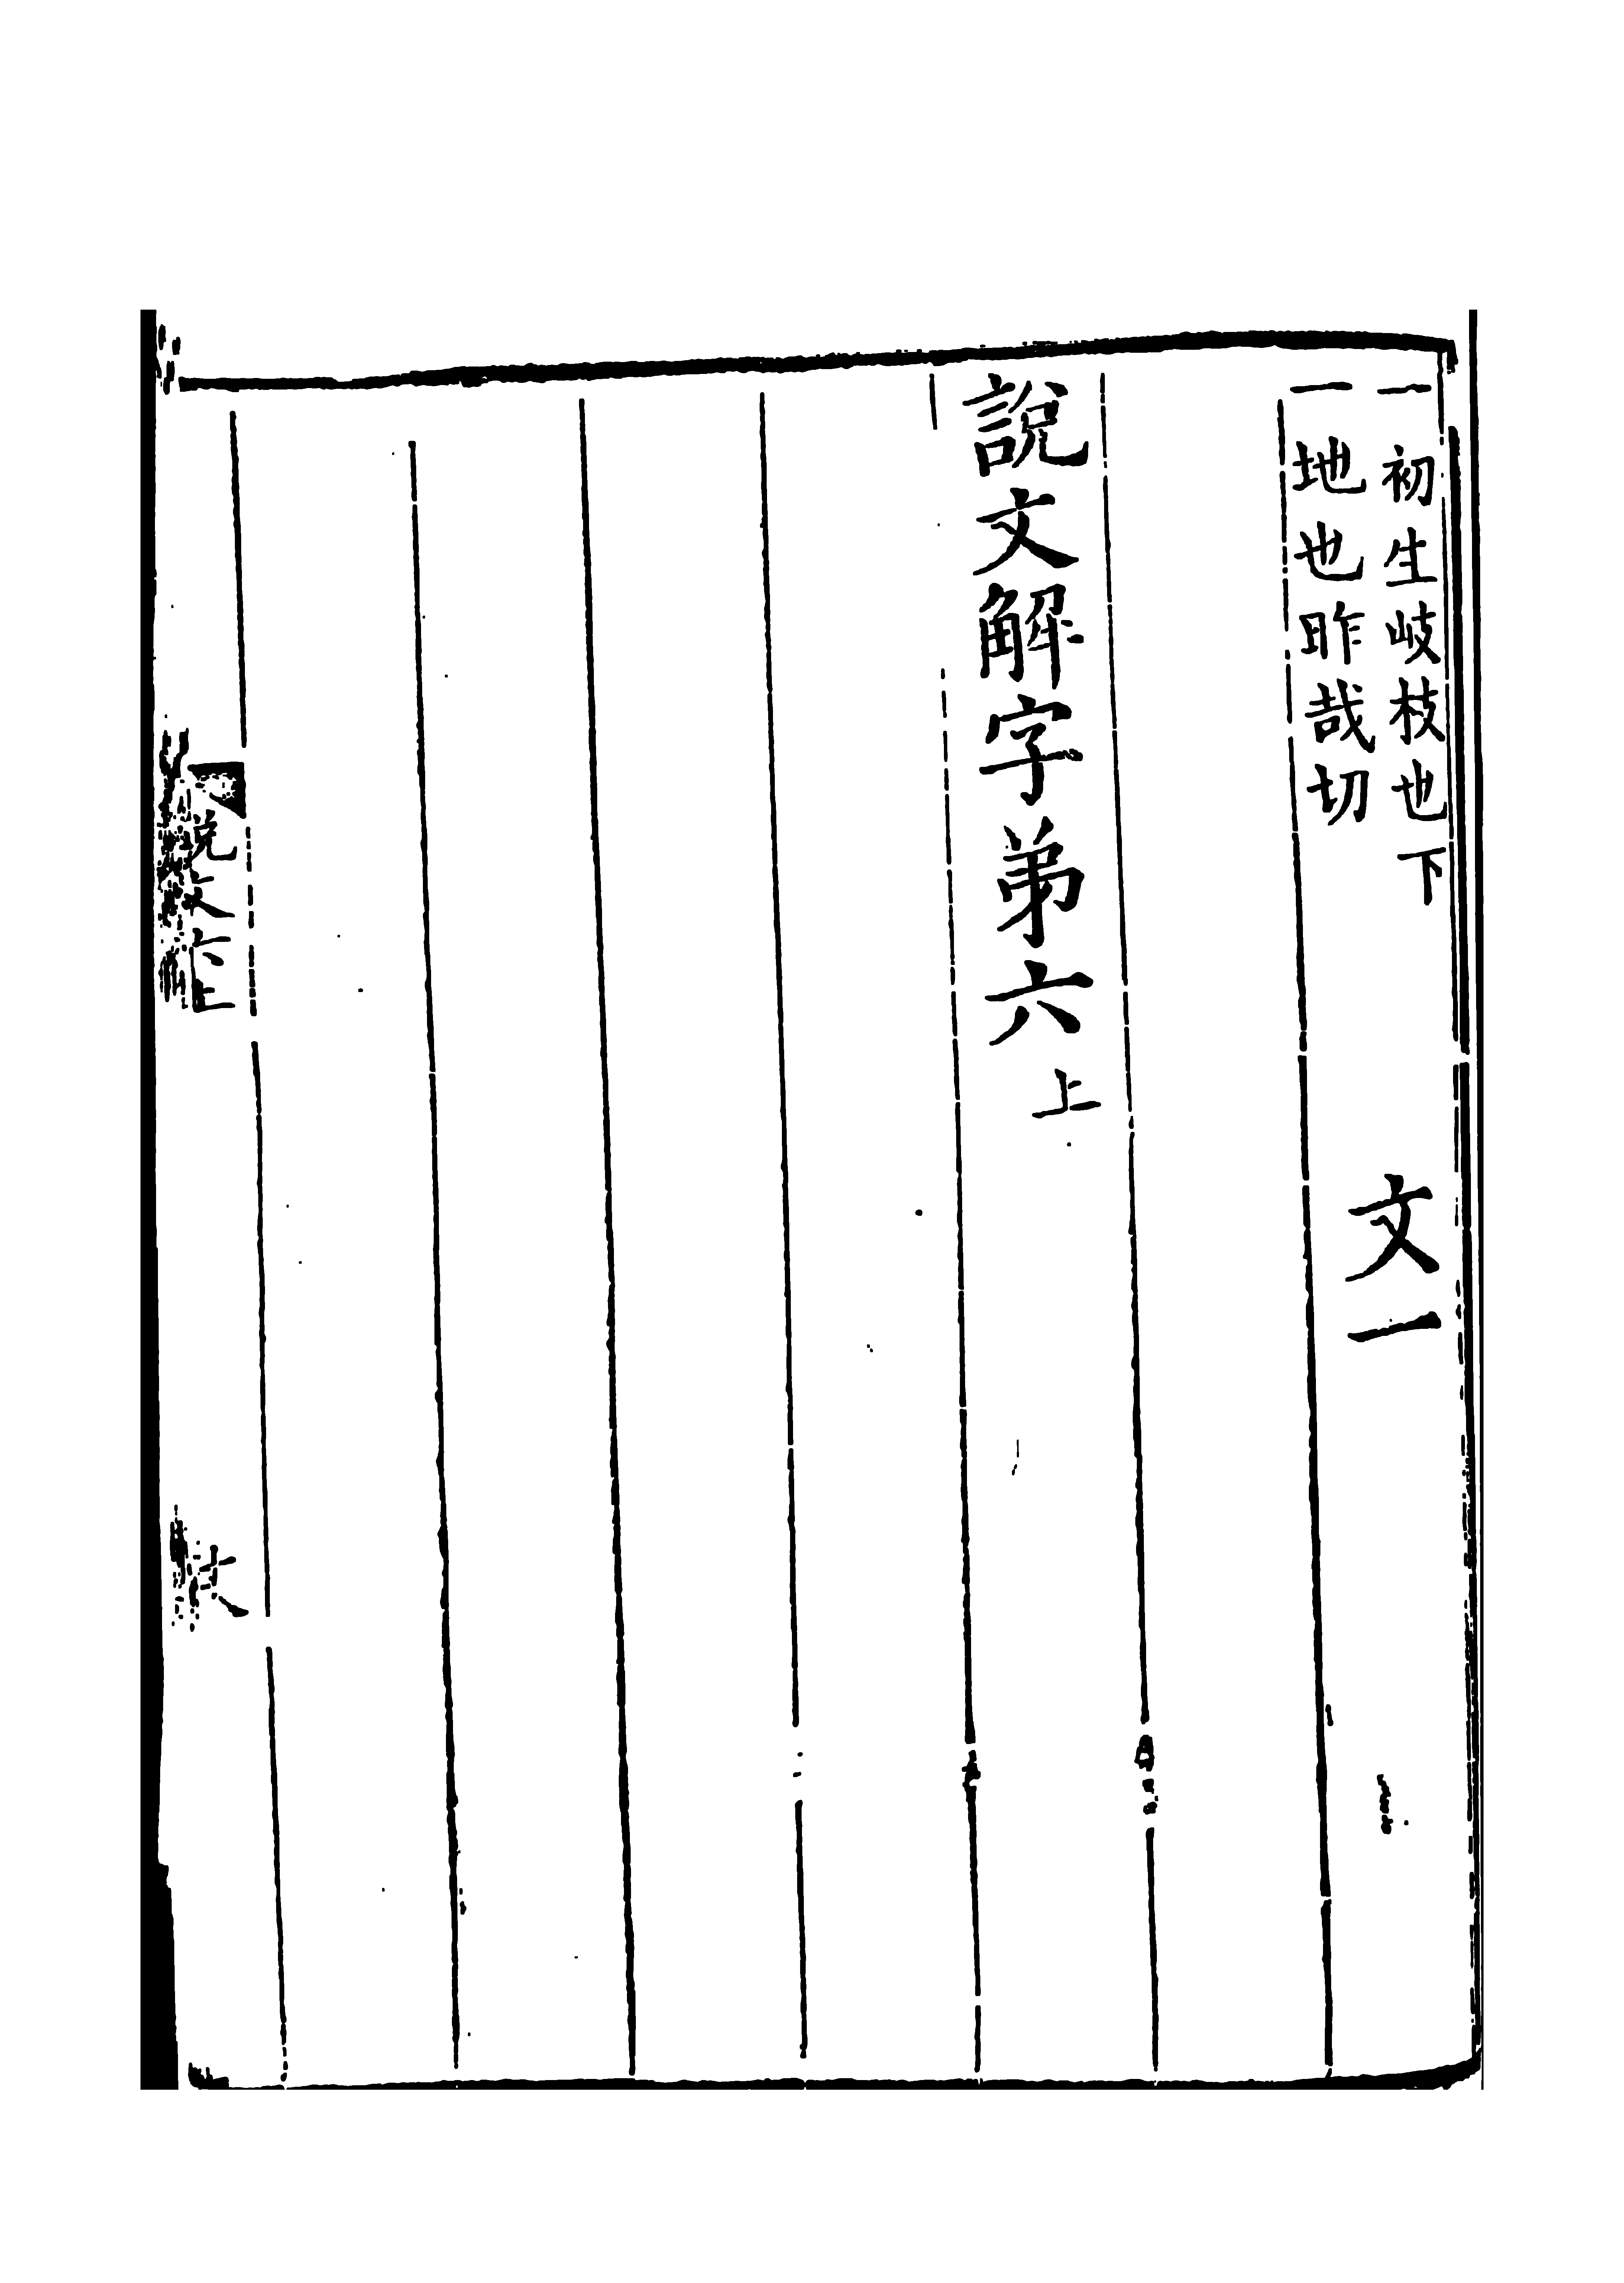 一初生岐枝也下
一地也昨哉切
文一
說文解字弟六上
說文六上